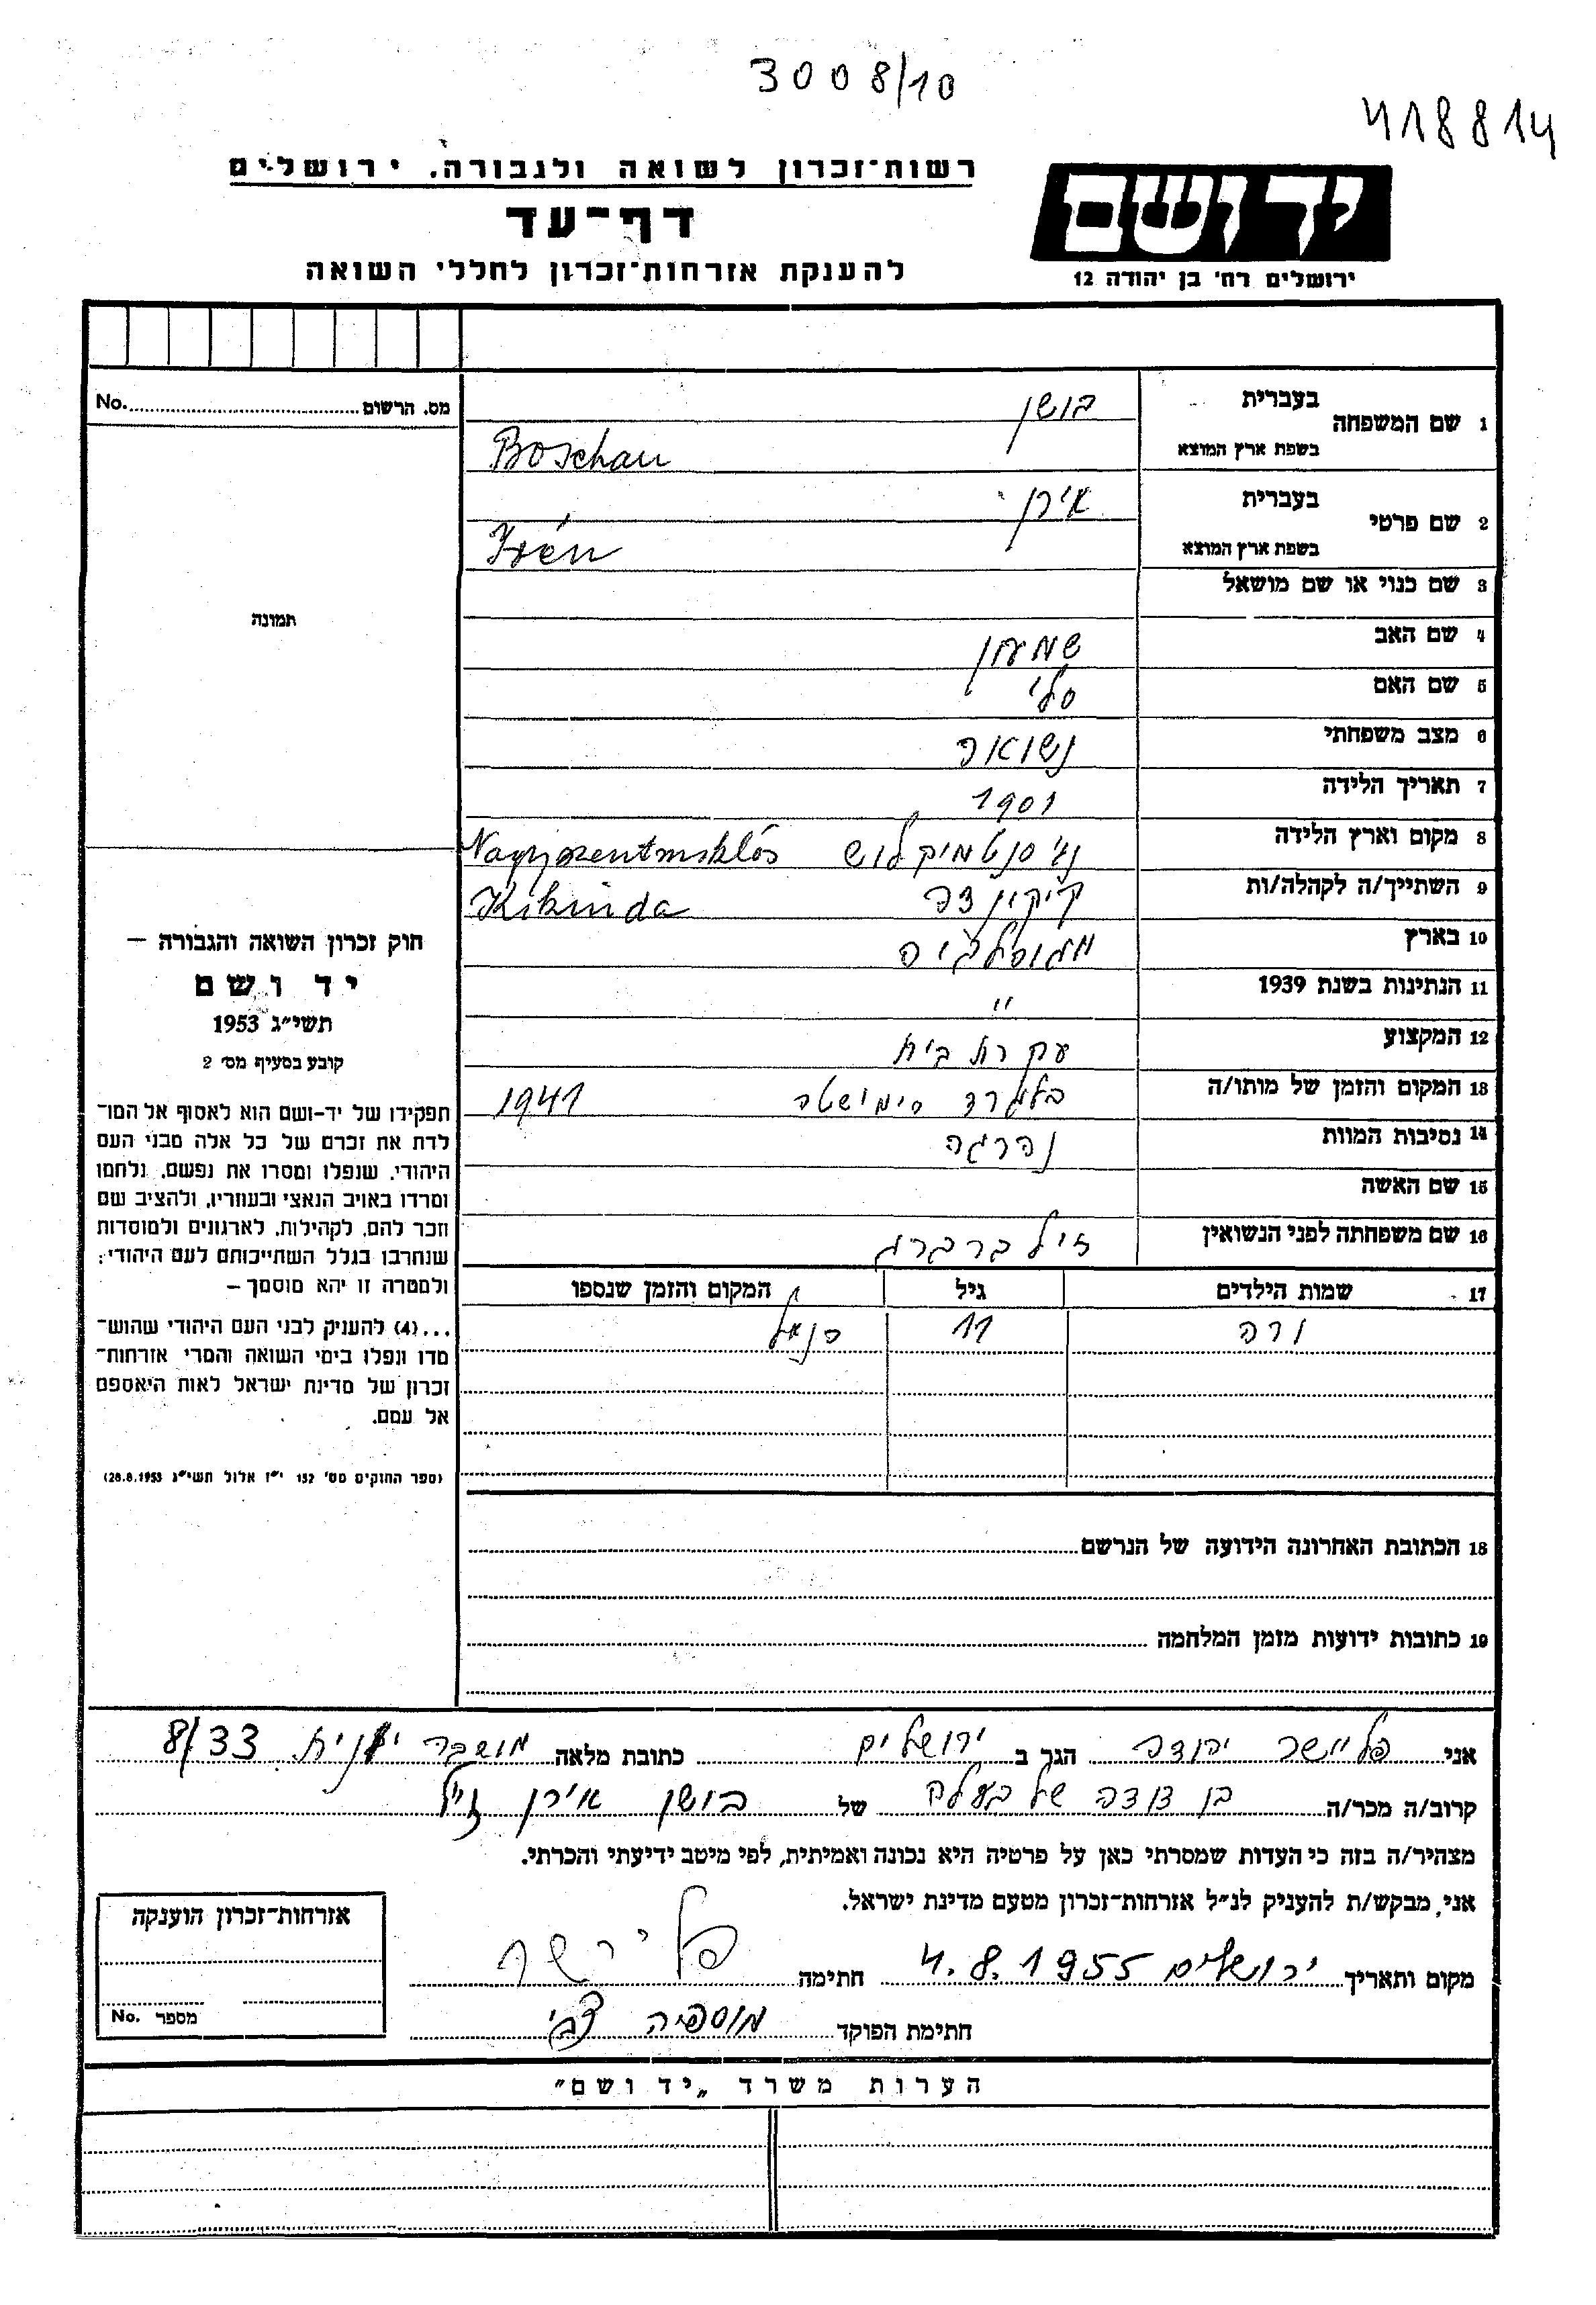 3008/10
418814
רשות־זכרון לשואה ולגבורה. ירושלים
יד ושם
דף־עד
להענקת אזרחות־זכרון לחללי השואה
ירושלים רח' בן יהודה 12
מס. הרשום No.
1 שם המשפחה בעברית בושן
בשפת ארץ המוצא Boschan
2 שם פרטי בעברית אירן
בשפת ארץ המוצא Irén
3 שם כנוי או שם מושאל
תמונה
4 שם האב שמעון
5 שם האם סלי
6 מצב משפחתי נשואה
7 תאריך הלידה 1901
8 מקום וארץ הלידה נג' סנטמיקלוש Nagyszentmiklós
9 השתייך/ה לקהלה/ות קיקינדה Kikinda
10 בארץ יוגוסלביה
11 הנתינות בשנת 1939 "
12 המקצוע עקרת בית
13 המקום והזמן של מותו/ה בלגרד סימישטה 1941
14 נסיבות המוות נהרגה
15 שם האשה
16 שם משפחתה לפני הנשואין זילברברג
17 שמות הילדים גיל המקום והזמן שנספו
ורה 11 כנ"ל
18 הכתובת האחרונה הידועה של הנרשם
19 כתובות ידועות מזמן המלחמה
חוק זכרון השואה והגבורה –
יד ושם
תשי"ג 1953
קובע בסעיף מס' 2
תפקידו של יד-ושם הוא לאסוף אל המו־
לדת את זכרם של כל אלה מבני העם
היהודי, שנפלו ומסרו את נפשם, נלחמו
ומרדו באויב הנאצי ובעוזריו, ולהציב שם
וזכר להם, לקהילות, לארגונים ולמוסדות
שנחרבו בגלל השתייכותם לעם היהודי;
ולמטרה זו יהא מוסמך –
...(4) להעניק לבני העם היהודי שהוש־
מדו ונפלו בימי השואה והמרי אזרחות־
זכרון של מדינת ישראל לאות היאספם
אל עמם.
(ספר החוקים מס' 132 י"ז אלול תשי"ג 28.8.1953)
אני פליישר יהודה הגר ב ירושלים כתובת מלאה מושבה יונית 8/33
קרוב/ה מכר/ה בן דודה של בעלה של בושן אירן ז"ל
מצהיר/ה בזה כי העדות שמסרתי כאן על פרטיה היא נכונה ואמיתית, לפי מיטב ידיעתי והכרתי.
אני, מבקש/ת להעניק לנ"ל אזרחות־זכרון מטעם מדינת ישראל.
מקום ותאריך ירושלים 4.8.1955 חתימה פליישר
חתימת הפוקד צבי
אזרחות־זכרון הוענקה
מספר No.
הערות משרד „יד ושם"